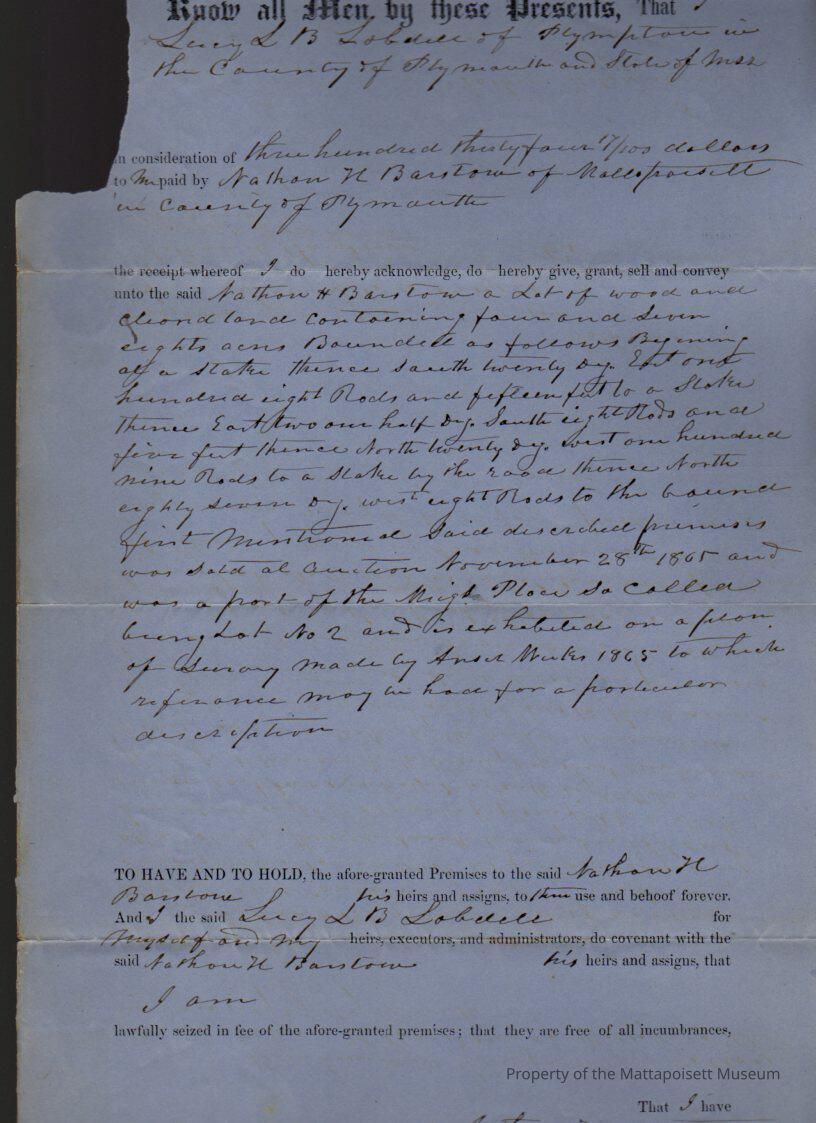 Know all Men by these Presents, That I
Lucy L B Lobdell of Plympton in
the County of Plymouth and State of Mss
in consideration of three hundred thirty four 17/100 dollars
to me paid by Nathan H Barstow of Mattapoisett
in County of Plymouth
the receipt whereof I do hereby acknowledge, do hereby give, grant, sell and convey
unto the said Nathan H Barstow a Lot of wood and
cleard land containing four and seven
eights acres Bounded as follows Begining
at a stake thence South twenty Dg. East one
hundred eight Rods and fifteen feet to a Stake
thence East two one half Dg. South eight Rods and
five feet thence North twenty Dg. west one hundred
nine Rods to a Stake by the road thence North
eighty seven Dg. west eight Rods to the bound
first Mentioned Said described premises
was sold at auction November 28th 1865 and
was a part of the Place So called
being Lot No 2 and is exhibited on a plan
of Survey made by Ansel Weeks 1865 to which
referance may be had for a particular
description
TO HAVE AND TO HOLD, the afore-granted Premises to the said Nathan H
Barstow his heirs and assigns, to them use and behoof forever.
And I the said Lucy L B Lobdell for
Myself and my heirs, executors, and administrators, do covenant with the
said Nathan H Barstow his heirs and assigns, that
I am
lawfully seized in fee of the afore-granted premises; that they are free of all incumbrances,
Property of the Mattapoisett Museum
That I have